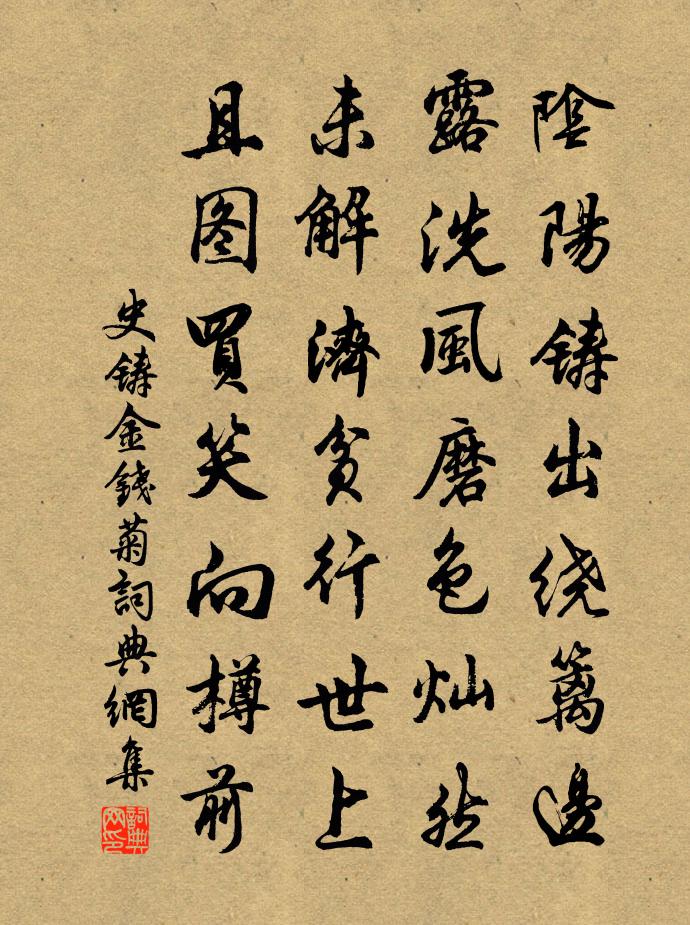 陰陽鑄出绕籬邊
露洗風磨色灿然
未解濟貧行世上
且图買笑向樽前
史鑄金錢菊詞典網集
詞典网印